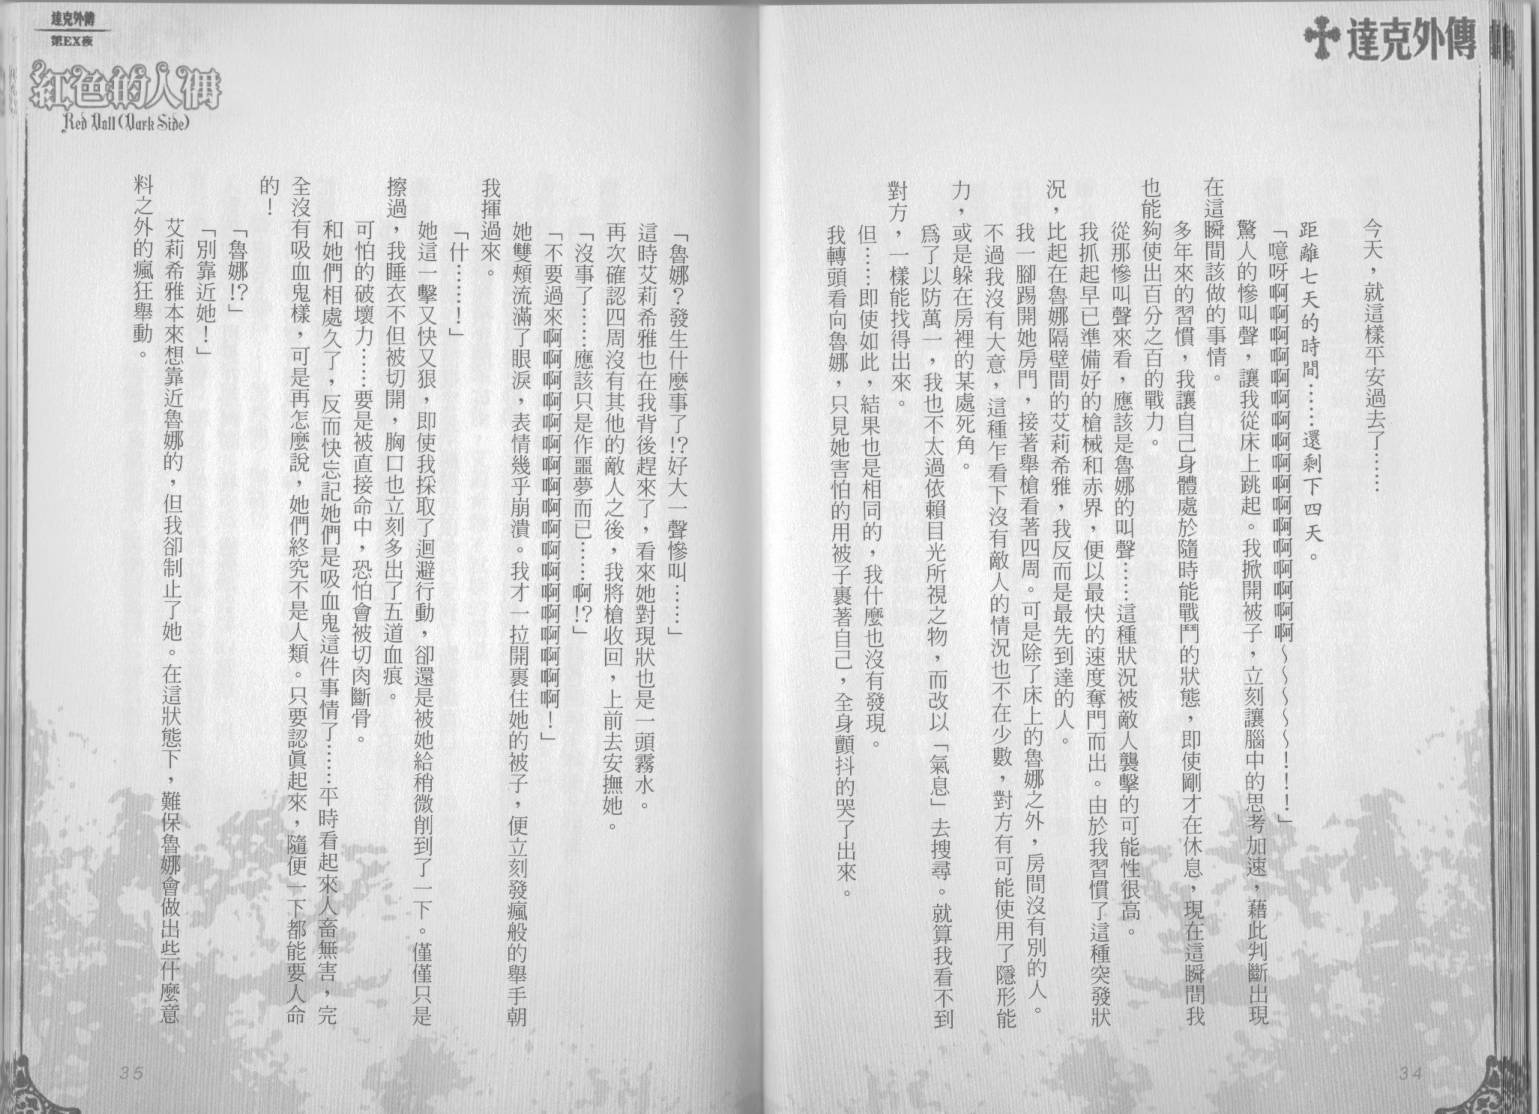 達克外傳
今天，就這樣平安過去了……
距離七天的時間……還剩下四天。
「噫呀啊啊啊啊啊啊啊啊啊啊啊啊啊啊啊啊～～～～～！！！」
驚人的慘叫聲，讓我從床上跳起。我掀開被子，立刻讓腦中的思考加速，藉此判斷出現
在這瞬間該做的事情。
多年來的習慣，我讓自己身體處於隨時能戰鬥的狀態，即使剛才在休息，現在這瞬間我
也能夠使出百分之百的戰力。
從那慘叫聲來看，應該是魯娜的叫聲……這種狀況被敵人襲擊的可能性很高。
我抓起早已準備好的槍械和赤界，便以最快的速度奪門而出。由於我習慣了這種突發狀
況，比起在魯娜隔壁間的艾莉希雅，我反而是最先到達的人。
我一腳踢開她房門，接著舉槍看著四周。可是除了床上的魯娜之外，房間沒有別的人。
不過我沒有大意，這種乍看下沒有敵人的情況也不在少數，對方有可能使用了隱形能
力，或是躲在房裡的某處死角。
為了以防萬一，我也不太過依賴目光所視之物，而改以「氣息」去搜尋。就算我看不到
對方，一樣能找得出來。
但……即使如此，結果也是相同的，我什麼也沒有發現。
我轉頭看向魯娜，只見她害怕的用被子裹著自己，全身顫抖的哭了出來。
34
達克外傳
第EX夜
紅色的人偶
Red Doll (Dark Side)
「魯娜？發生什麼事了!?好大一聲慘叫……」
這時艾莉希雅也在我背後趕來了，看來她對現狀也是一頭霧水。
再次確認四周沒有其他的敵人之後，我將槍收回，上前去安撫她。
「沒事了……應該只是作噩夢而已……啊!?」
「不要過來啊啊啊啊啊啊啊啊啊啊啊啊啊啊啊啊！」
她雙頰流滿了眼淚，表情幾乎崩潰。我才一拉開裹住她的被子，便立刻發瘋般的舉手朝
我揮過來。
「什………！」
她這一擊又快又狠，即使我採取了迴避行動，卻還是被她給稍微削到了一下。僅僅只是
擦過，我睡衣不但被切開，胸口也立刻多出了五道血痕。
可怕的破壞力……要是被直接命中，恐怕會被切肉斷骨。
和她們相處久了，反而快忘記她們是吸血鬼這件事情了……平時看起來人畜無害，完
全沒有吸血鬼樣，可是再怎麼說，她們終究不是人類。只要認真起來，隨便一下都能要人命
的！
「魯娜!?」
「別靠近她！」
艾莉希雅本來想靠近魯娜的，但我卻制止了她。在這狀態下，難保魯娜會做出些什麼意
料之外的瘋狂舉動。
35